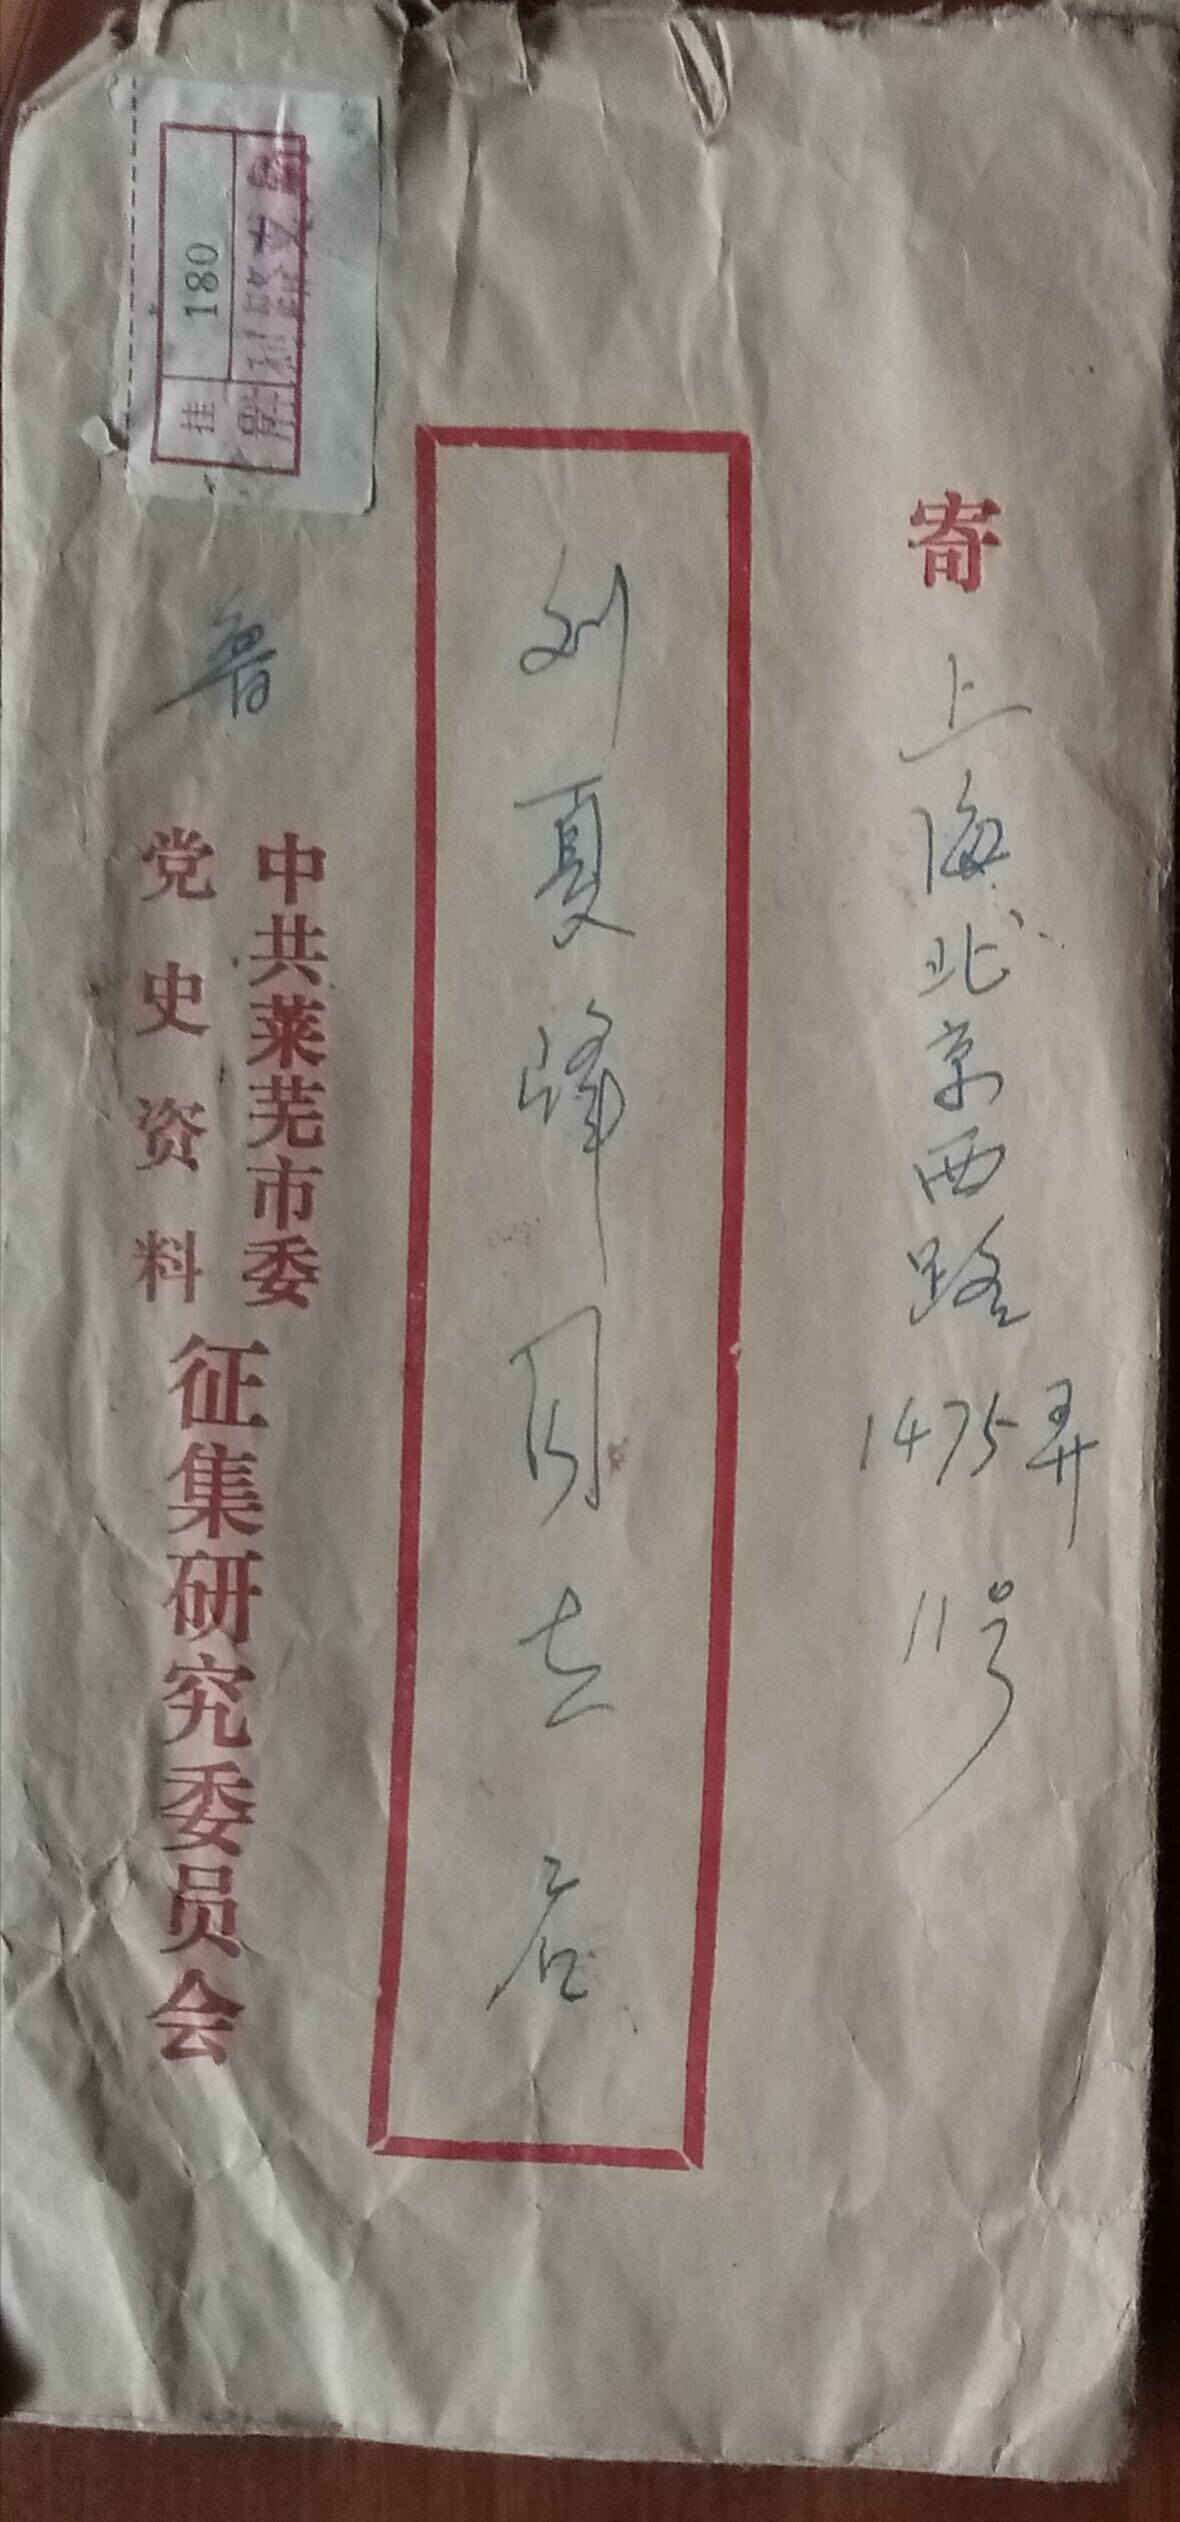 寄 上海北京西路
1475弄
11号
刘夏峰同志启
鲁
中共莱芜市委
党史资料
征集研究委员会
挂 180